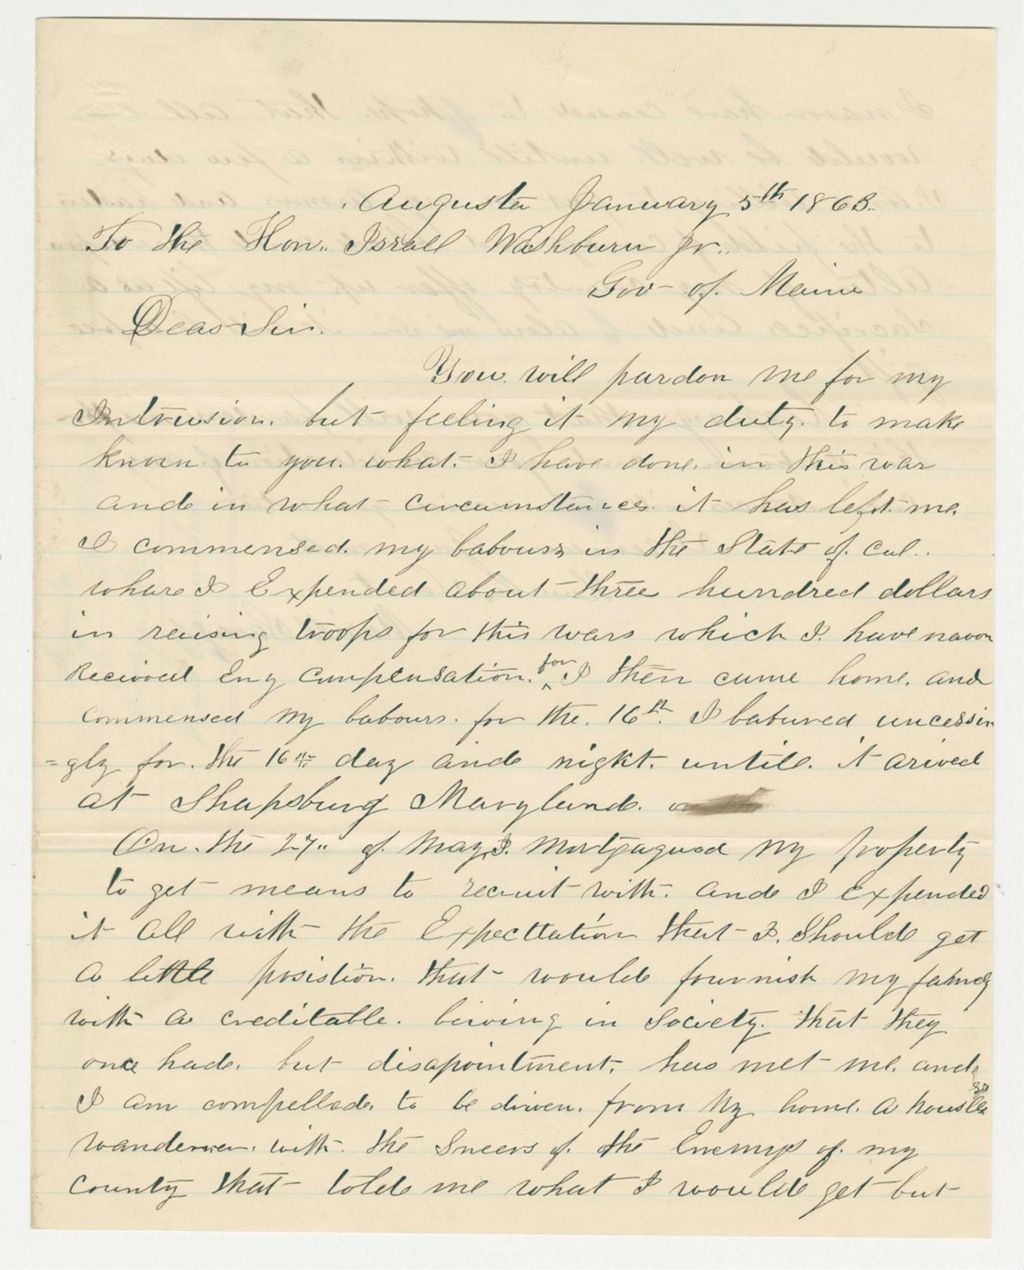 Augusta January 5th 1863.
To the Hon. Israll Washburn jr.
Gov of. Maine
Dear Sir.
You will pardon me for my
Intrusion. but feeling it my duty. to make
known to you. what I have done. in this war
and in what circumstances it has left me.
I commensed. my labours in the State of Cal..
whare I Expended about three hundred dollars
in reising troops for this wars which I have never
Recieved Eny Compensation. for I then came home. and
Commensed my labours. for the. 16th. I labured uncessin
=gly for. the 16th day and night. untill. it arived
at Shapsburg Maryland.
On. the 27" of May I. Mortgagued my property
to get means to recruit with. and I Expended
it all with the Expecttation that I. Should get
a little posistion. that would fournish my family
with a creditable. liviving in Society. that they
once had. but disapointment. has met me. and
I am compelled. to be driven. from my home. a housless
wanderer. with. the Sneers of. the Enemys of. my
County that told me what I would get but